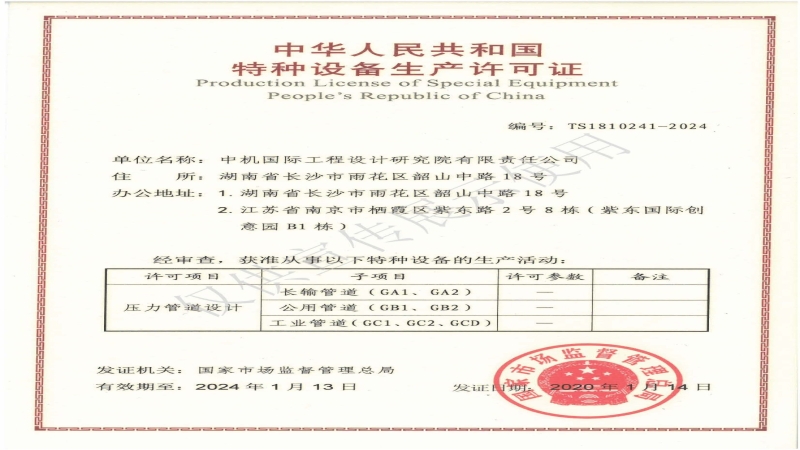 中华人民共和国
特种设备生产许可证
Production License of Special Equipment
People's Republic of China
编号：TS1810241-2024
单位名称：中机国际工程设计研究院有限责任公司
住 所：湖南省长沙市雨花区韶山中路18号
办公地址：1. 湖南省长沙市雨花区韶山中路18号
2. 江苏省南京市栖霞区紫东路2号8栋（紫东国际创
意园B1栋）
经审查，获准从事以下特种设备的生产活动：
许可项目 子项目 许可参数 备注
压力管道设计 长输管道（GA1、GA2） —
公用管道（GB1、GB2） —
工业管道（GC1、GC2、GCD） —
发证机关：国家市场监督管理总局
有效期至：2024年1月13日
发证日期：2020年1月14日
国家市场监督管理总局
仅供宣传展示使用